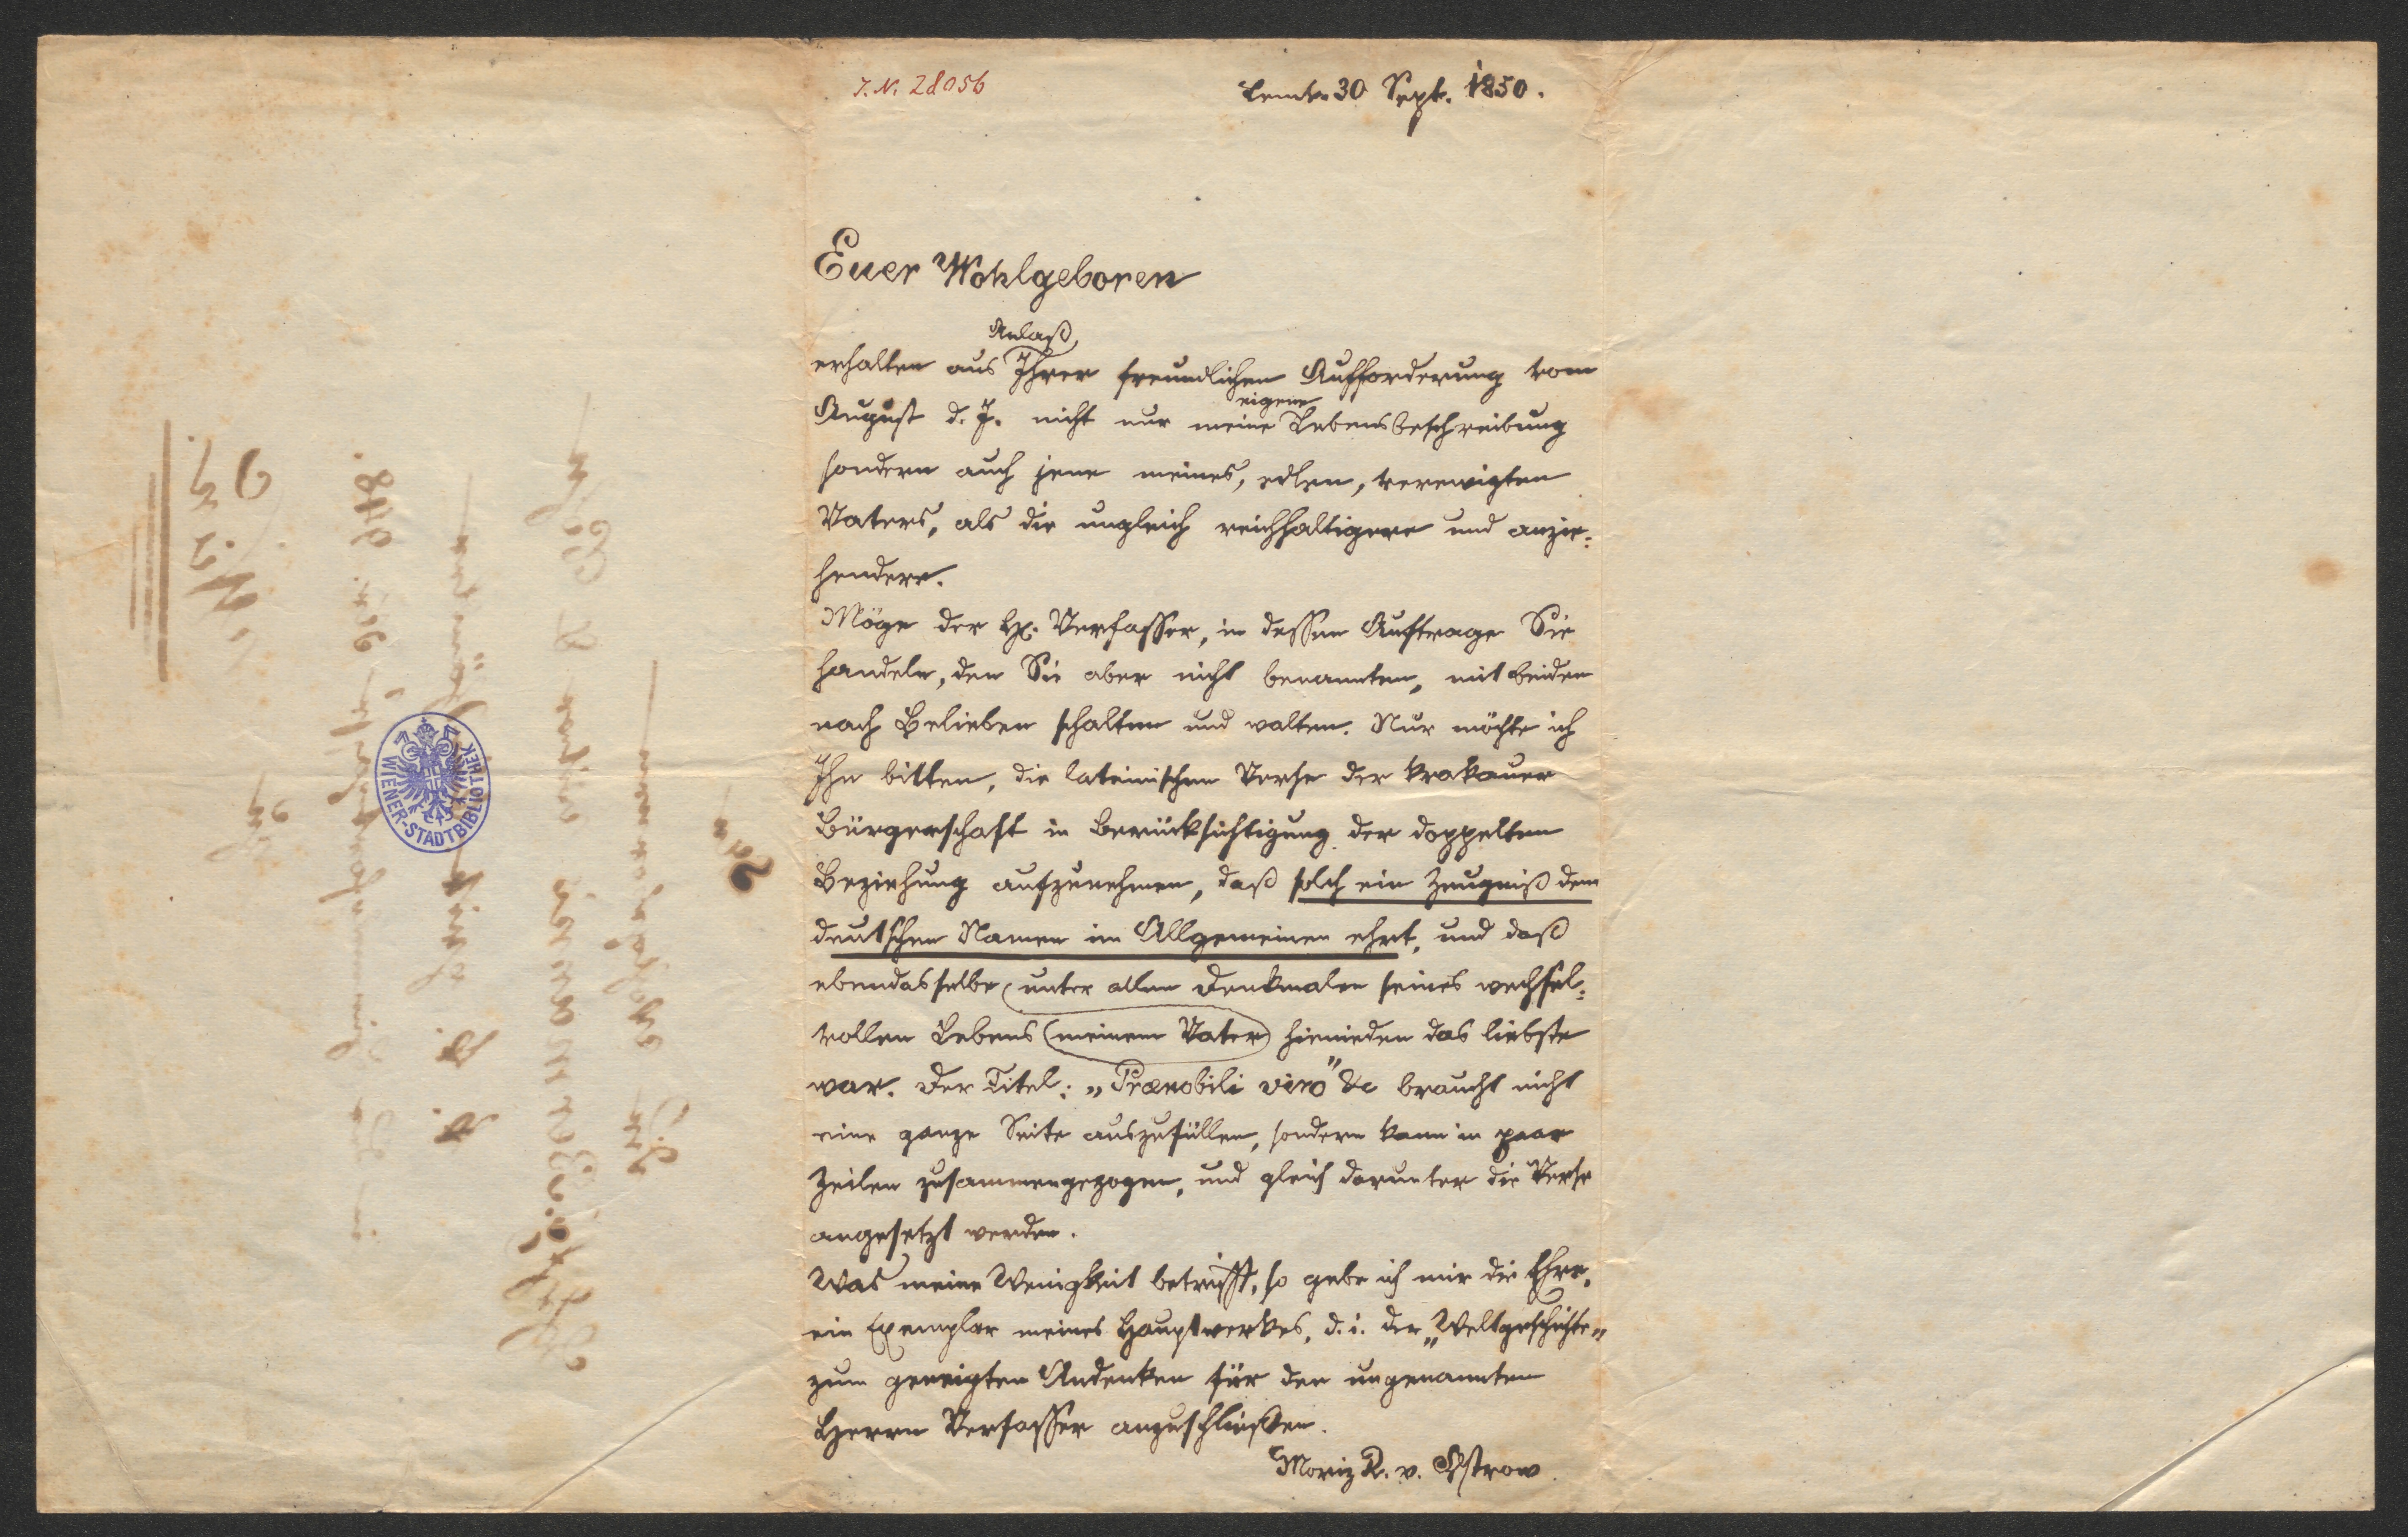 J. N. 28056
Lemb. 30 Sept. 1850.
Euer Wohlgeboren
Anlaß
erhalten aus Ihrer freundlichen Aufforderung vom
eigene
August d. J. nicht nur meine Lebensbeschreibung
sondern auch jene meines, edlen, verewigten
Vaters, als die ungleich reichhaltigere und anzie-
hendere.
Möge der H. Verfasser, in dessen Auftrage Sie
handeln, den Sie aber nicht benannten, mit beiden
nach Belieben schalten und walten. Nur möchte ich
Ihn bitten, die lateinischen Verse der Krakauer
Bürgerschaft in Berücksichtigung der doppelten
Beziehung aufzunehmen, daß solch ein Zeugniß dem
deutschen Namen im Allgemeinen ehrt, und daß
ebendasselbe unter allen Denkmalen seines wechsel-
vollen Lebens (meinem Vater) hienieden das liebste
war. Der Titel: „Prænobili viro" &c braucht nicht
eine ganze Seite auszufüllen, sondern kann in paar
Zeilen zusammengezogen, und gleich darunter die Verse
angesetzt werden.
Was meine Wenigkeit betrifft, so gebe ich mir die Ehre,
ein Exemplar meines Hauptwerkes, d. i. der „Weltgeschichte"
zum geneigten Andenken für den ungenannten
Herrn Verfasser anzuschließen.
Moriz R. v. Ostrow
WIENER-STADTBIBLIOTHEK